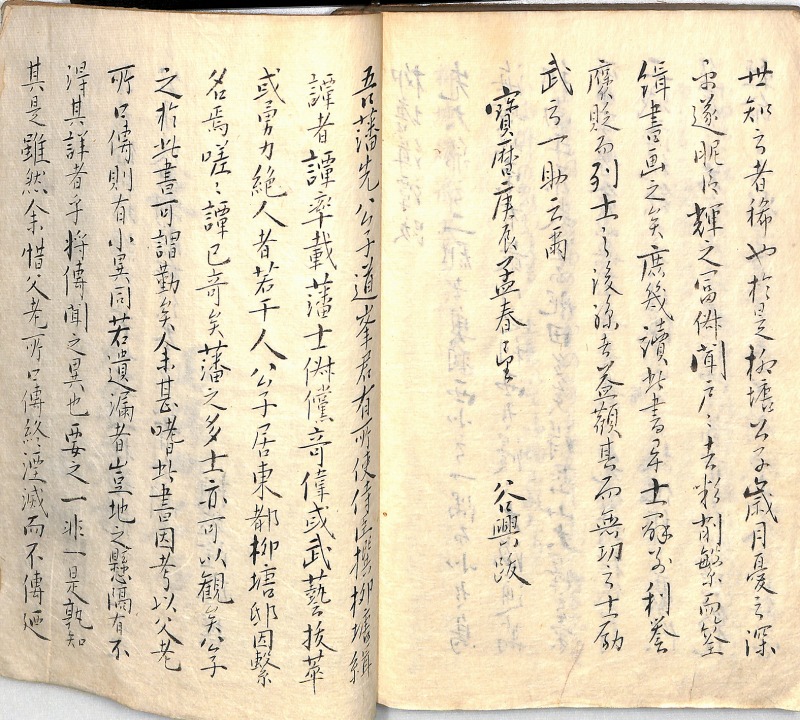 世知之者稀也於是柳塘公子歳月憂之深
遂昵臣輝之冨俾聞戸〻去斯削繁而筌
緝書画之矣庶幾讀此書尋士
廣貶而列士之後孫去益顧其而無功之士励
武之一助云爾
寶曆庚辰孟春望　谷興跋
吾藩先公子道峯君有所使侍臣撰柳塘緝
譚者譚率載藩士倜儻竒偉或武藝抜萃
或勇力絶人者若干人公子居東都柳塘邸因繫
名焉嗟〻譚已竒矣藩之多士亦可以觀矣公子
之於此書可謂勤矣余甚嗜此書因考以父老
所口傳則有小異同若遺漏者豈地之懸隔有不
得其詳者乎将傳聞之異也要之一非一是孰知
其是雖然余惜父老所口傳終湮滅而不傳廼